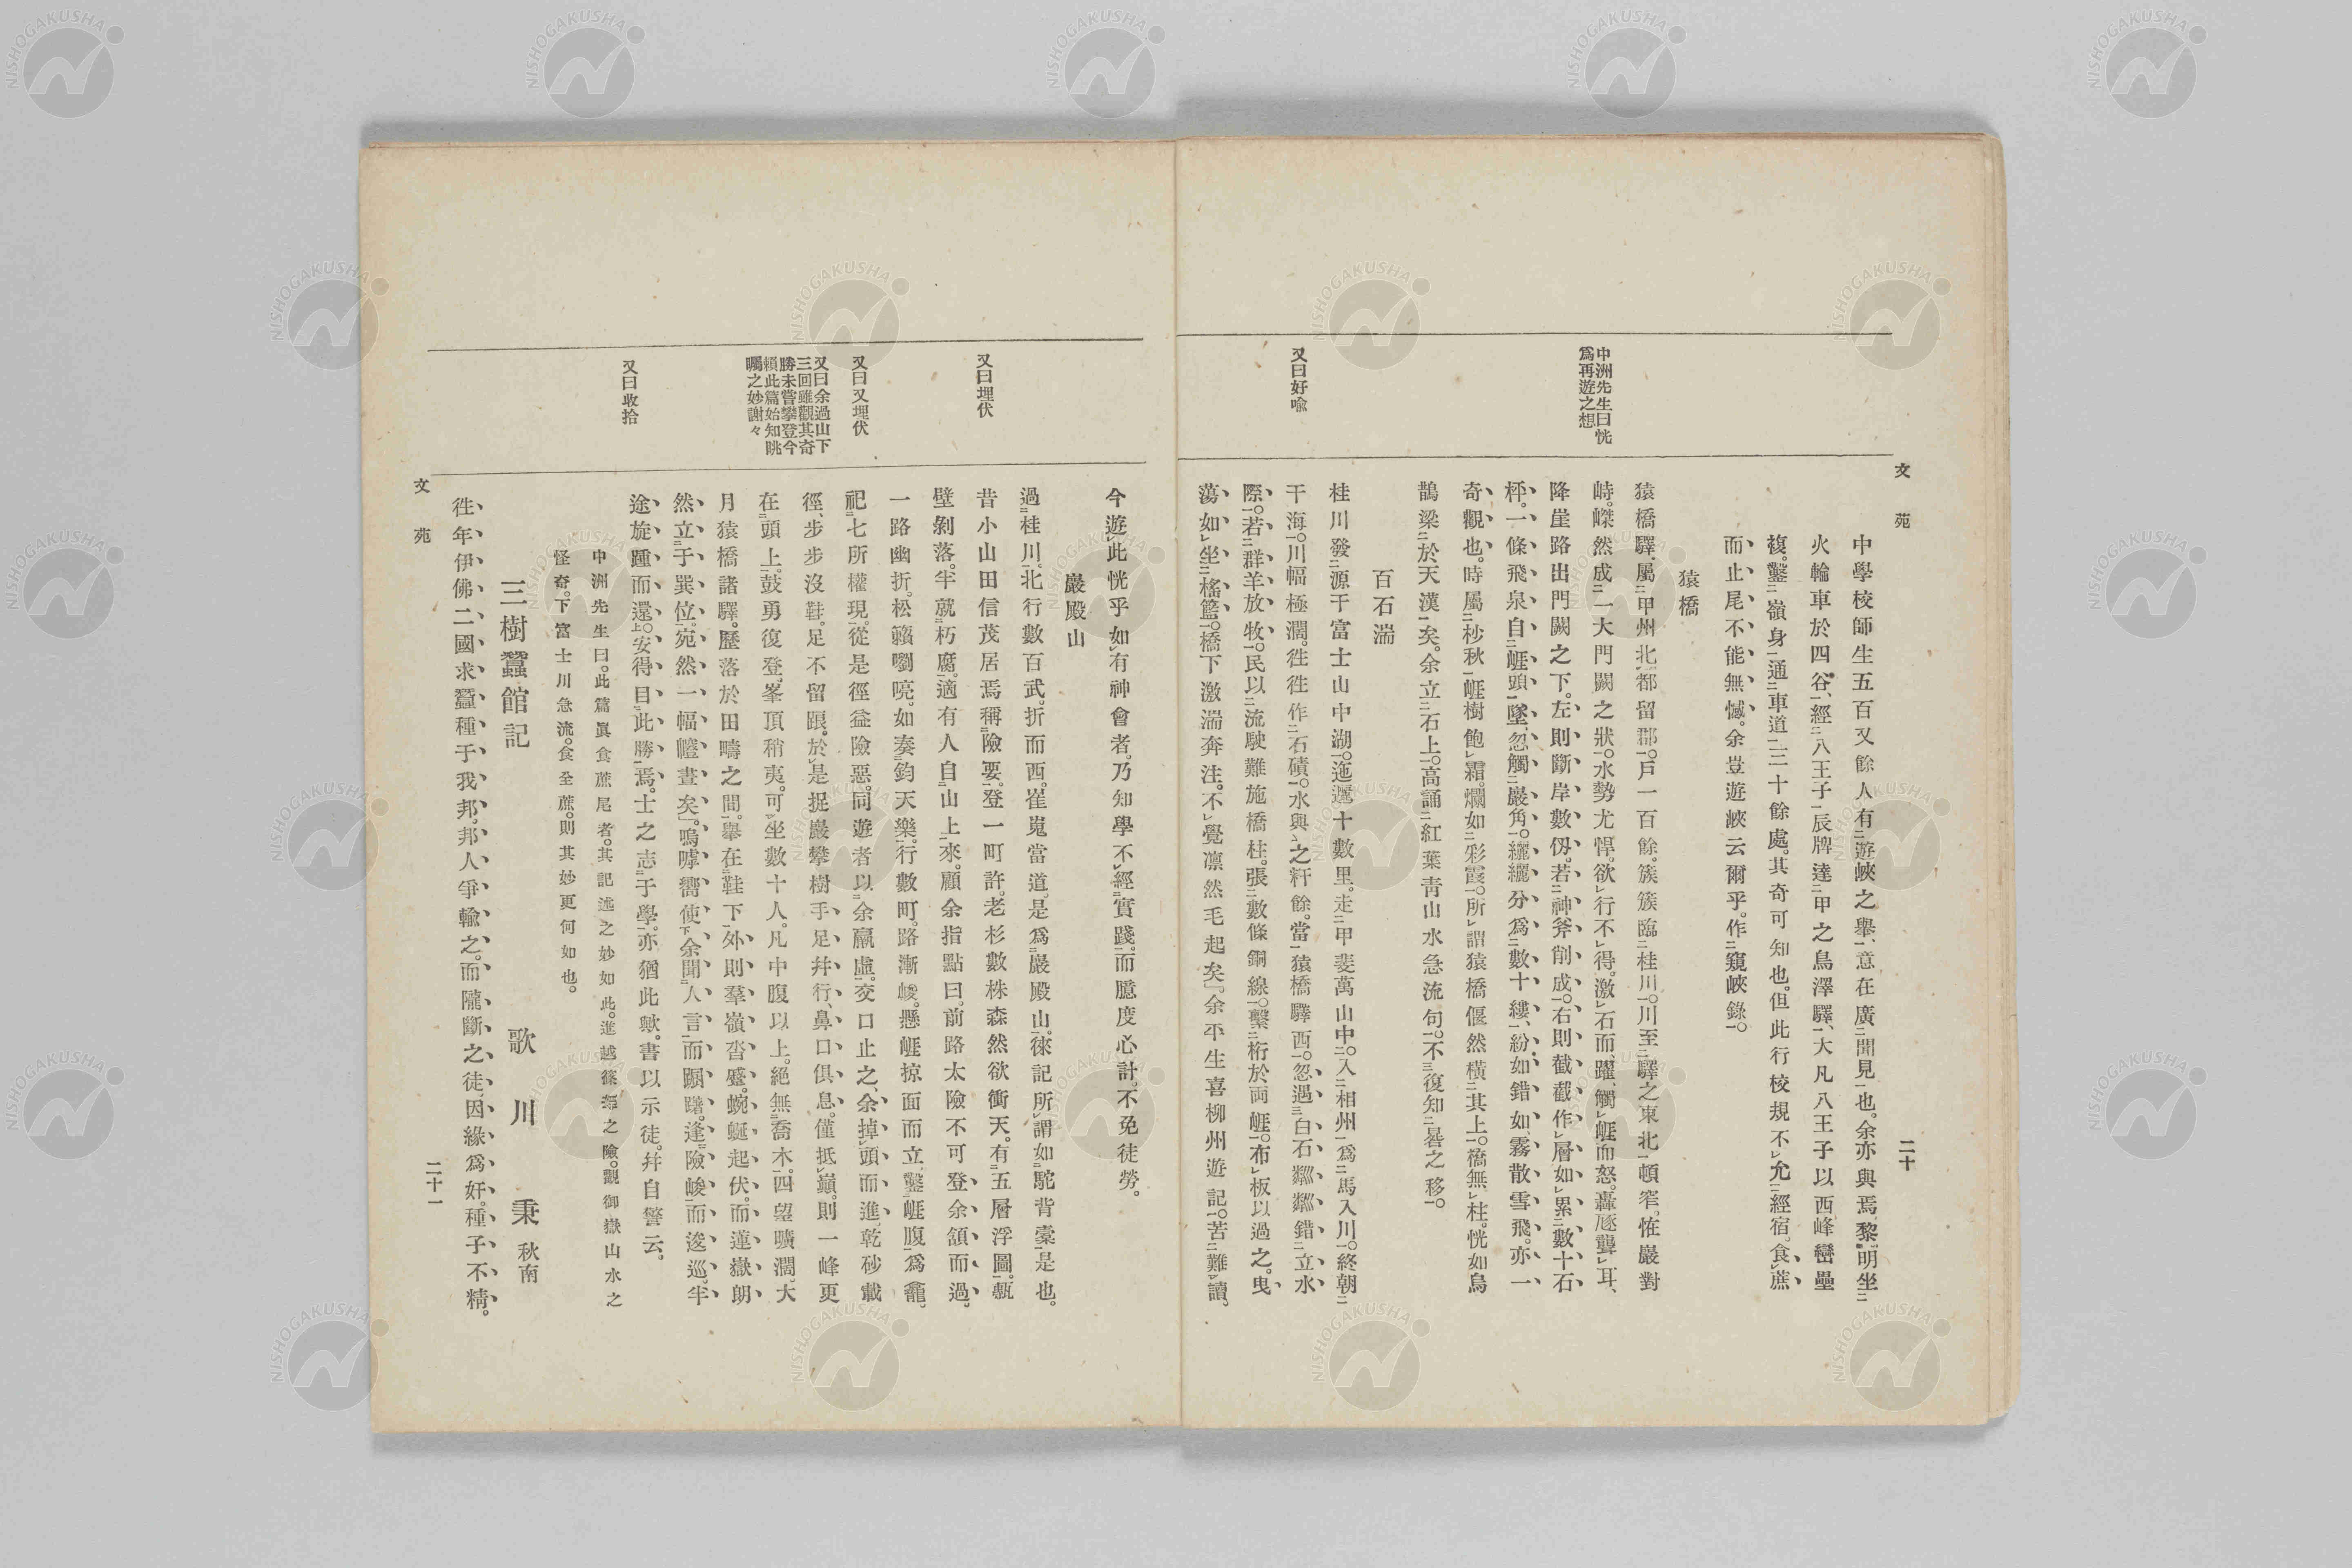 文苑
二十
中洲先生曰恍
爲再遊之想
又曰好喩
中學校師生五百又餘人有遊峽之擧、意在廣聞見也。余亦與焉黎明坐
火輪車於四谷、經八王子、辰牌達甲之鳥澤驛、大凡八王子以西峰巒疊
複。鑿嶺身通車道三十餘處。其奇可知也。但此行校規不允經宿。食蔗
而止尾不能無憾。余豈遊峽云爾乎。作窺峽錄。
猿橋
猿橋驛、屬甲州北都留郡。戶一百餘。簇簇臨桂川。川至驛之東北頓窄。恠巖對
峙。嶸然成一大門闕之狀。水勢尤悍。欲行不得。激石而躍、觸崕而怒。轟豗聾耳、
降崖路出門闕之下。左則斷岸數仭。若神斧削成。右則截嶻作層如累數十石
枰。一條飛泉自崕頭墜、忽觸巖角。纚纚分爲數十縷、紛如錯如、霧散雪飛。亦一
奇觀也。時屬杪秋崕樹飽霜。爛如彩霞。所謂猿橋偃然橫其上。橋無柱。恍如烏
鵲梁於天漢矣。余立石上。高誦紅葉靑山水急流句。不復知晷之移。
百石湍
桂川發源于富士山中湖。迤邐十數里。走甲斐萬山中。入相州爲馬入川。終朝
干海。川幅極濶。徃徃作石磧。水與之紆餘。當猿橋驛西。忽遇白石粼粼錯立水
際。若群羊放牧。民以流駛難施橋柱。張數條鋼線。繫桁於両崕。布板以過之。曳
蕩如坐榣籃。橋下激湍奔注。不覺凛然毛起矣。余平生喜柳州遊記。苦難讀。
又曰埋伏
又曰又埋伏
又曰余過山下
三回雖觀其奇
勝未嘗攀登今
賴此篇始知眺
矚之妙謝々
又曰收拾
今遊此恍乎如有神會者。乃知學不經實踐。而臆度心計。不免徒勞。
巖殿山
過桂川。北行數百武。折而西。崔嵬當道。是爲巖殿山。徠記所謂如駝背槖是也。
昔小山田信茂居焉稱險要。登一町許。老杉數株森然欲衝天。有五層浮圖。甎
壁剝落。半就朽腐。適有人自山上來。顧余指點曰。前路太險不可登余頷而過。
一路幽折。松籟瀏喨。如奏鈞天樂。行數町。路漸峻。懸崕掠面而立、鑿崕腹爲龕。
祀七所權現。從是徑益險惡。同遊者以余羸虛。交口止之、余掉頭而進、乾砂載
徑、步步沒鞋。足不留跟。於是捉巖攀樹手足幷行、鼻口俱息。僅抵巓。則一峰更
在頭上。鼓勇復登。峯頂稍夷。可坐數十人。凡中腹以上。絕無喬木。四望曠濶。大
月猿橋諸驛。歷落於田疇之間。擧在鞋下。外則羣嶺沓盛。蜿蜒起伏。而蓮嶽朗
然立于巽位。宛然一幅㡧畫矣。嗚嘑嚮使余聞人言而躕躇。逢險峻而逡巡。半
途旋踵而還。安得目此勝焉。士之志于學。亦猶此歟。書以示徒。幷自警云。
中洲先生曰。此篇眞食蔗尾者。其記述之妙如此。進越篠籜之險。觀御嶽山水之
怪奇。下富士川急流。食全蔗。則其妙更何如也。
三樹蠶館記
歌川秉秋南
徃年伊佛二國求蠶種于我邦。邦人爭輸之。而隴斷之徒、因緣爲奸。種子不精。
文苑
二十一